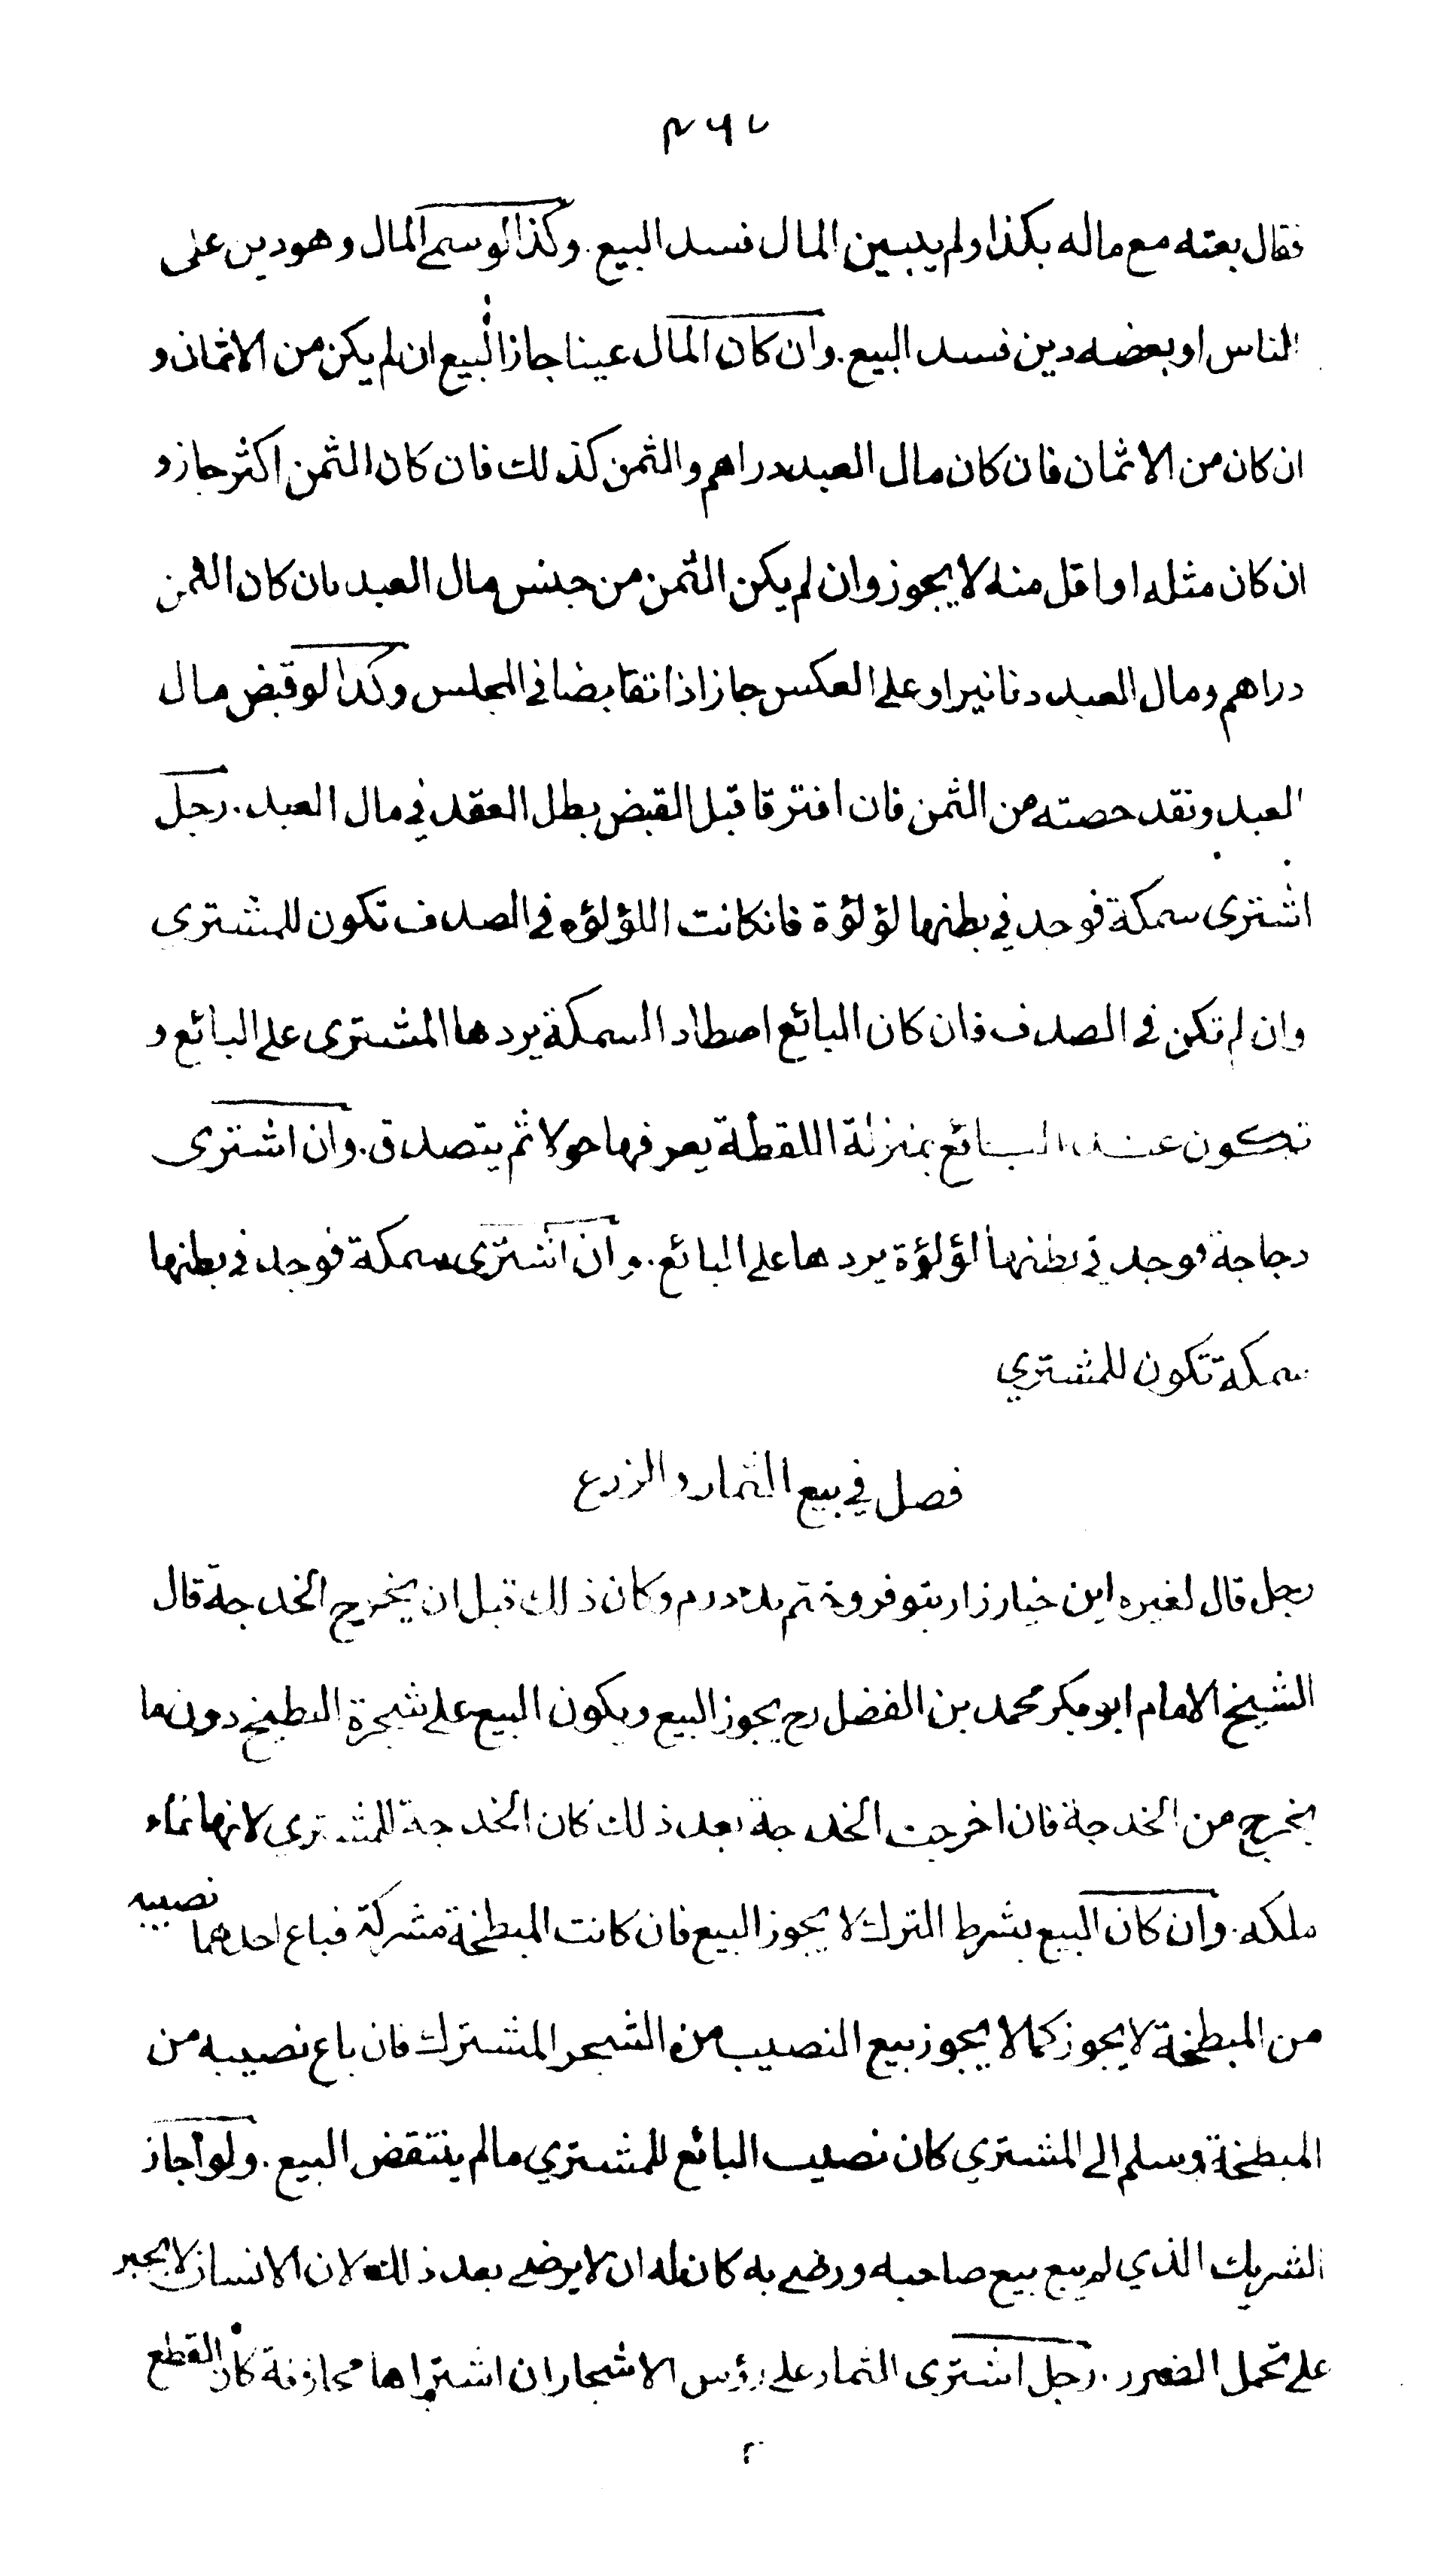 فقال بعته مع ماله بكذا ولم يبين المال فسد البيع. وكذا لو سمى المال وهو دين على
الناس او بعضه دين فسد البيع. وان كان المال عينا جاز البيع ان لم يكن من الاثمان و
ان كان من الاثمان فان كان مال العبد دراهم والثمن كذلك فان كان الثمن اكثر جاز و
ان كان مثله او اقل منه لا يجوز وان لم يكن الثمن من جنس مال العبد بان كان الثمن
دراهم ومال العبد دنانير او على العكس جاز اذا تقابضا في المجلس وكذا لو قبض مال
العبد ونقد حصته من الثمن فان افترقا قبل القبض بطل العقد في مال العبد. رجل
اشترى سمكة فوجد في بطنها لؤلؤة فانكانت اللؤلؤه في الصدف تكون للمشتري
وان لم تكن في الصدف فان كان البائع اصطاد السمكة يردها المشترى على البائع و
تكون عند البائع بمنزلة اللقطة يعرفها حولا ثم يتصدق. وان اشترى
دجاجة فوجد في بطنها لؤلؤة يردها على البائع. وان اشترى سمكة فوجد في بطنها
سمكة تكون للمشتري
فصل في بيع الثمار والزرع
رجل قال لغيره اين خيار زار بتو فروختم درم وكان ذلك قبل ان يخرج الخدجة قال
الشيخ الامام ابو بكر محمد بن الفضل رح يجوز البيع ويكون البيع على شجرة البطيخ دون ما
يخرج من الخدجة فان اخرجت الخدجة بعد ذلك كان الخدجة للمشتري لانها نماء
ملكه. وان كان البيع بشرط الترك لا يجوز البيع فان كانت المبطخة مشركة فباع احدهما نصيبه
من المبطخة لا يجوز كما لا يجوز بيع النصيب من الشجر المشترك فان باع نصيبه من
المبطخة وسلم الى المشتري كان نصيب البائع للمشتري مالم ينتقض البيع. ولو اجاز
الشريك الذي لم يبع بيع صاحبه ورضى به كان له ان لا يرضى بعد ذلك لان الانسان لا يجبر
على تحمل الضرر. رجل اشترى الثمار على رؤس الاشجار ان اشتراها مجازفة كان القطع